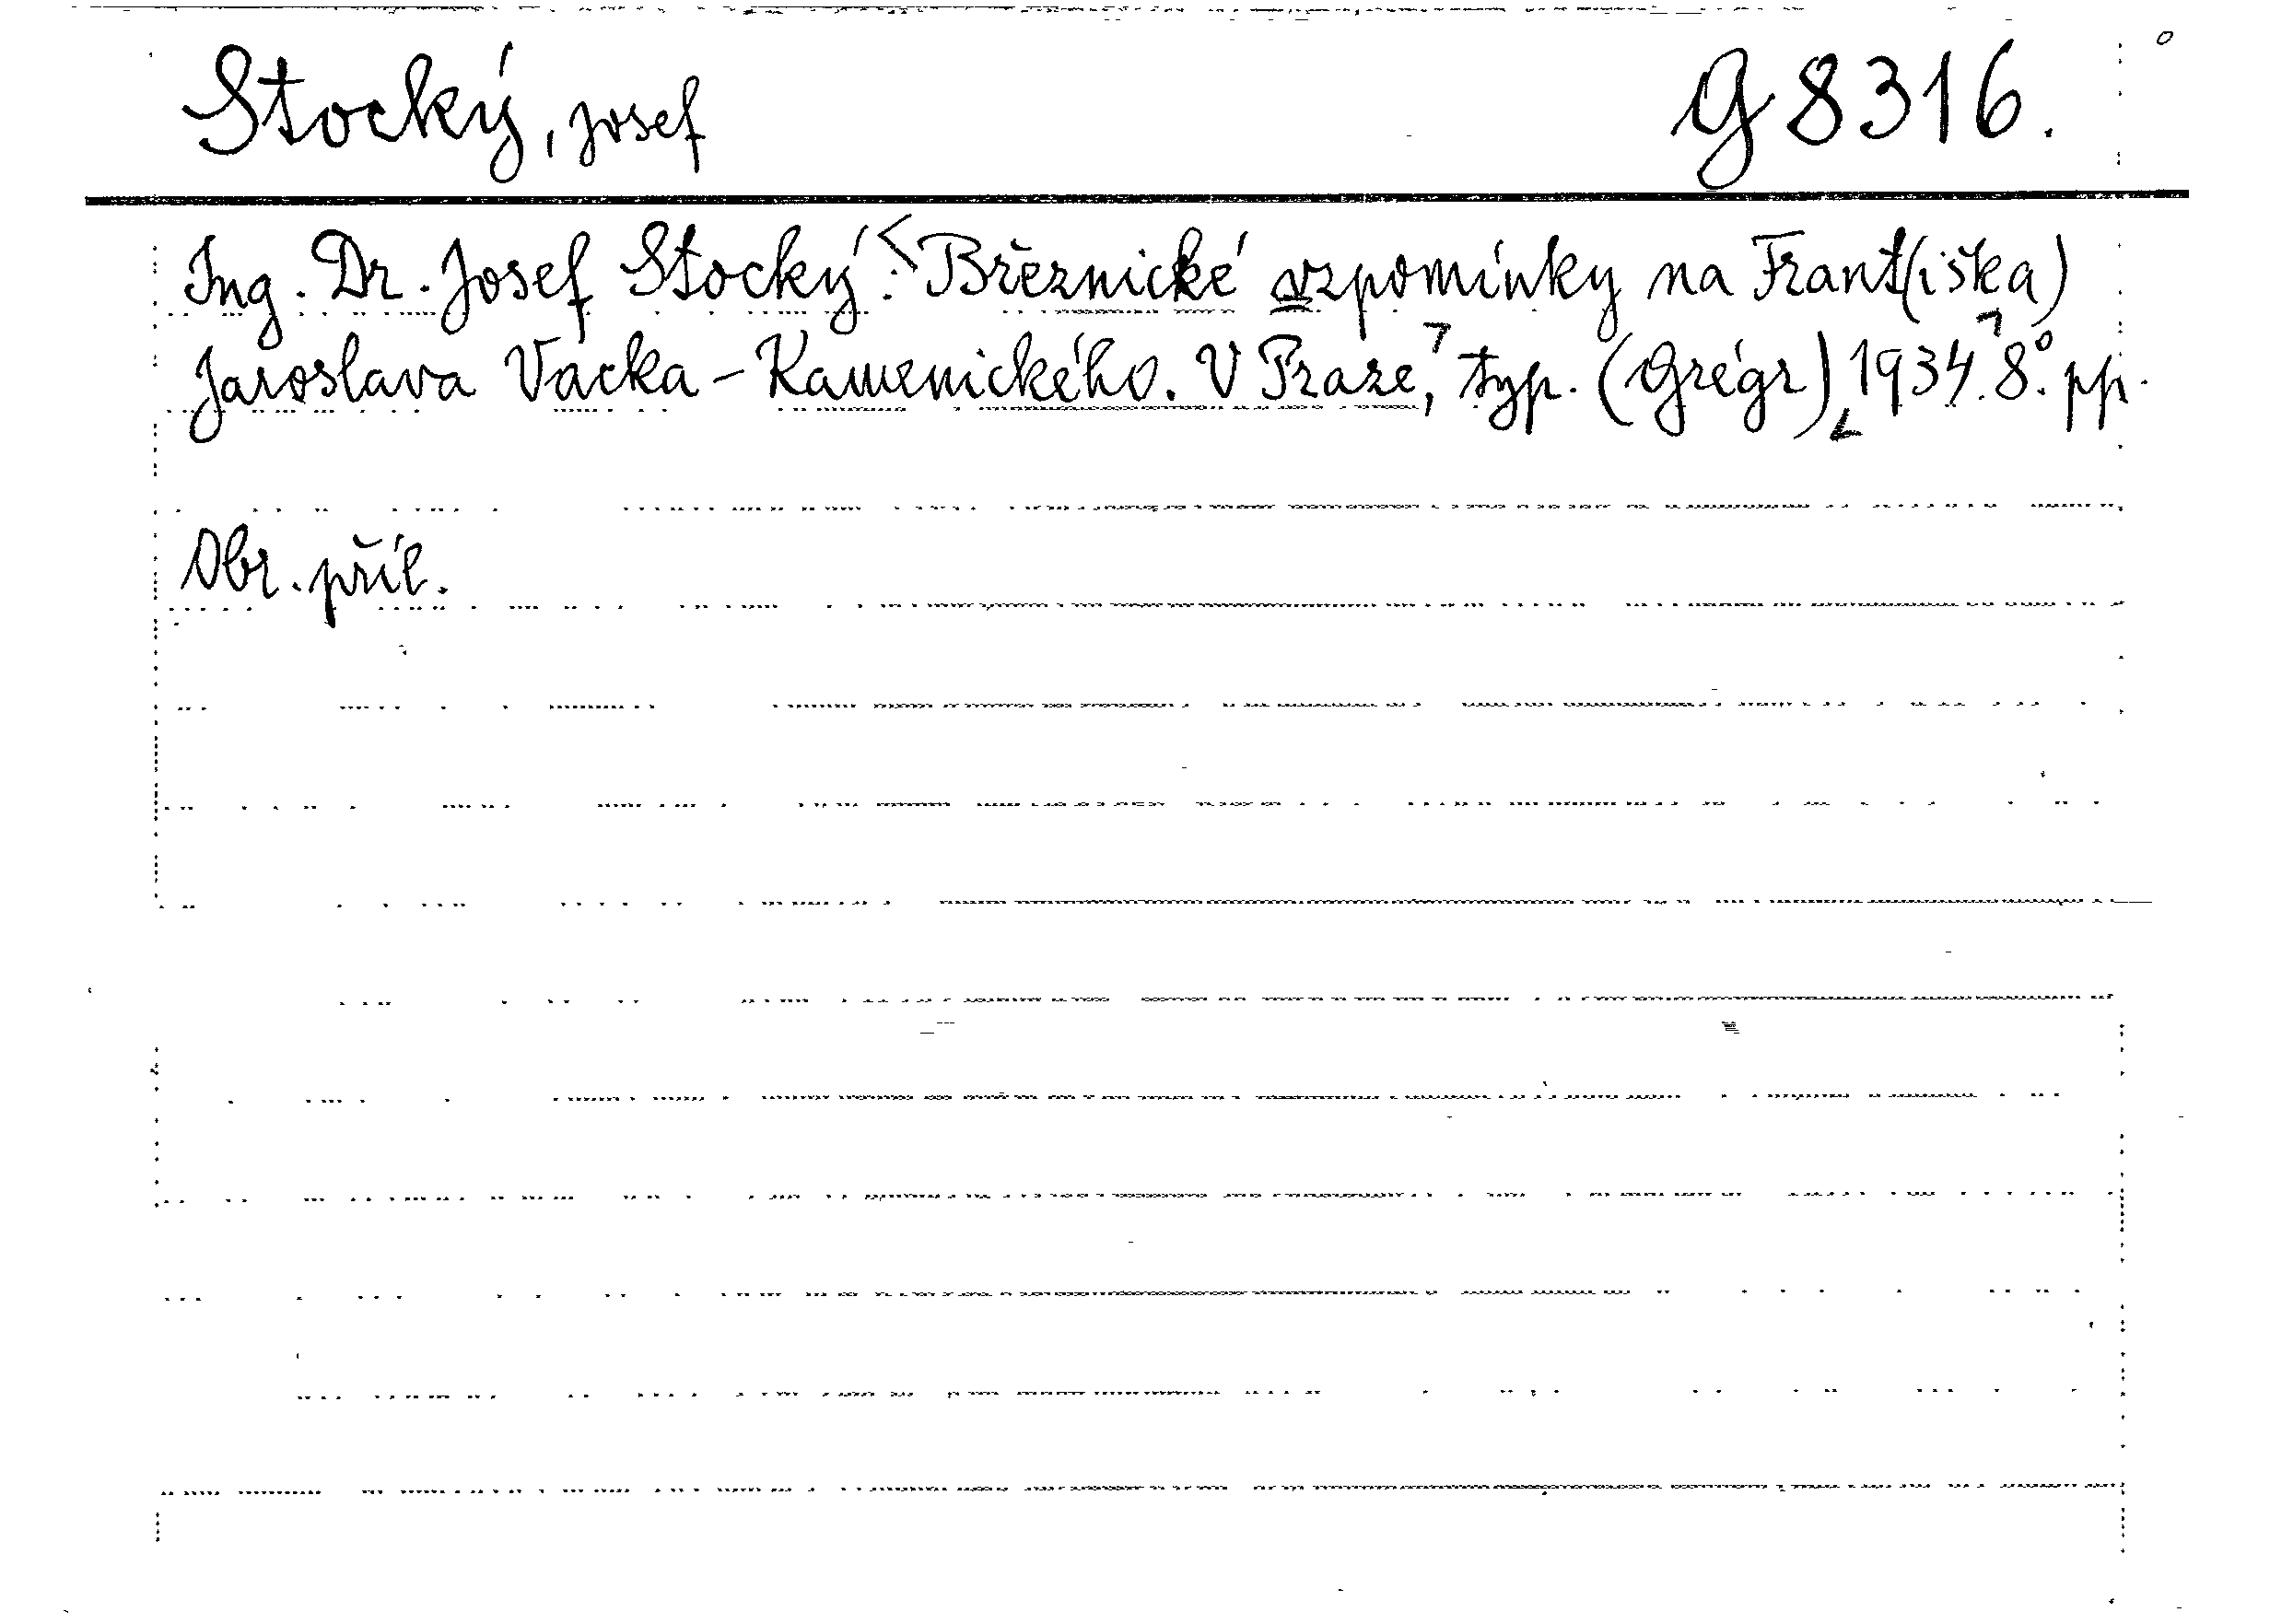 Stocký, Josef G 8316.
Ing. Dr. Josef Stocký: Březnické vzpomínky na Frant(iška)
Jaroslava Vacka-Kamenického. V Praze, typ. (Grégr) 1934. 8°. pp.
Obr. příl.